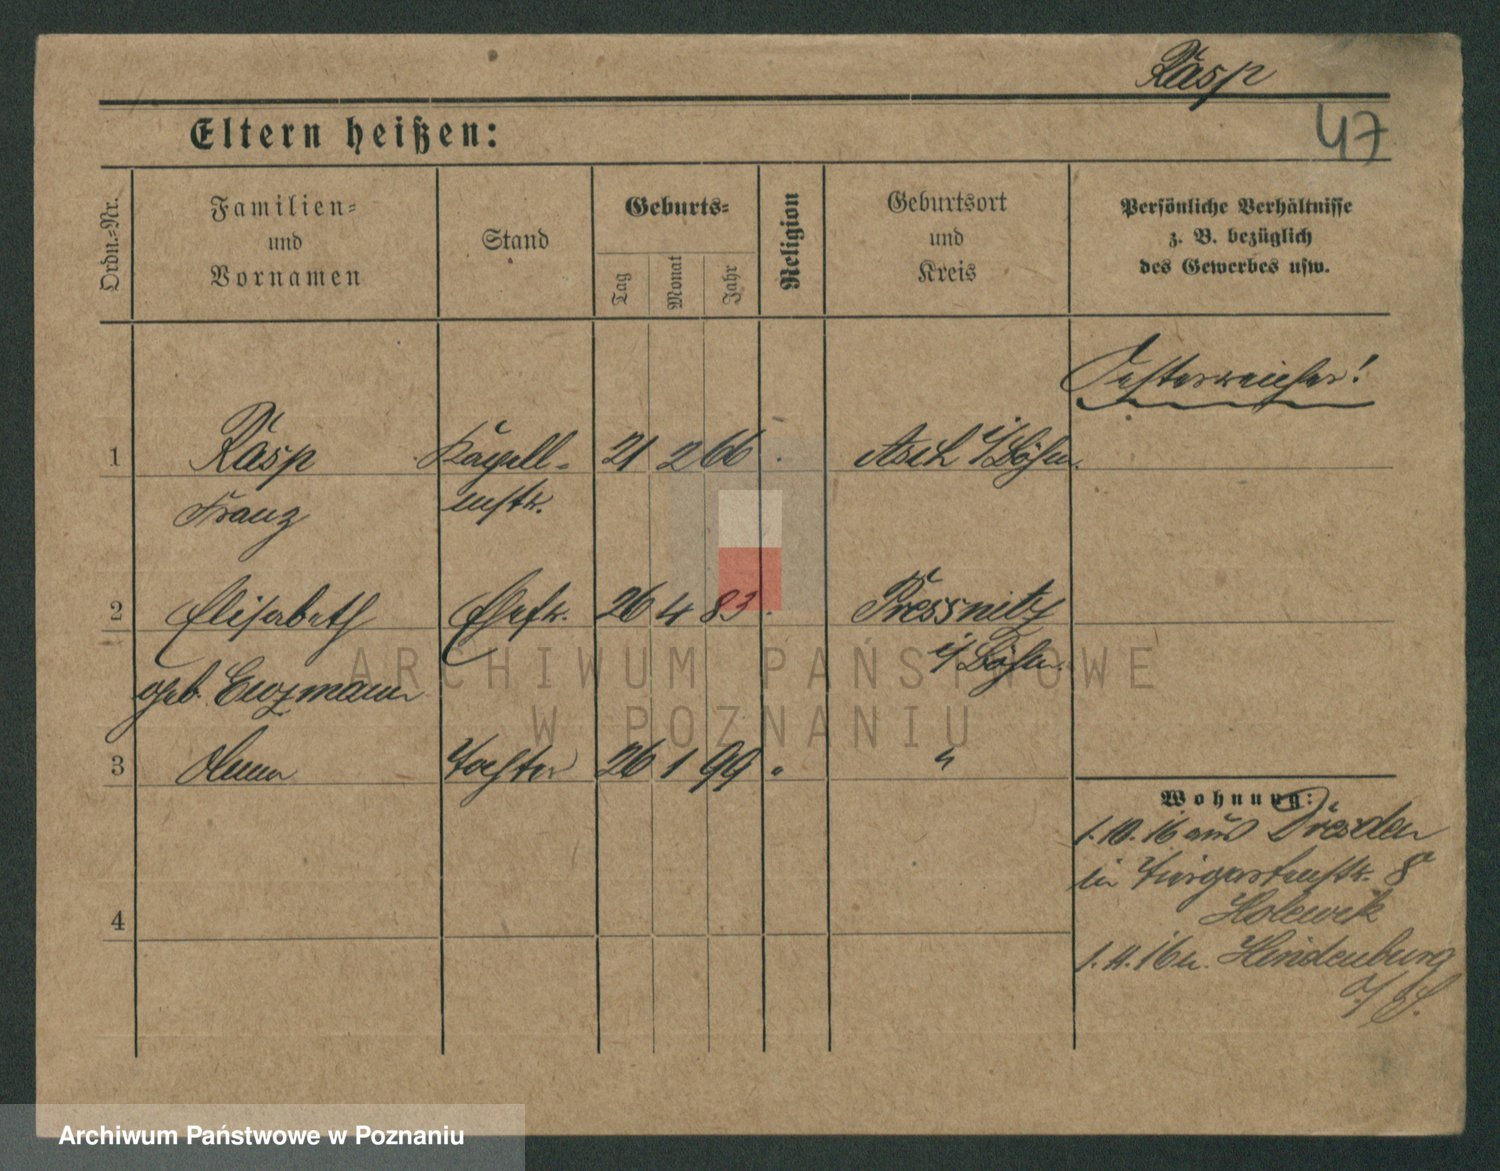 Rasp
47
Eltern heißen:
Ordn.-Nr.
Familien-
und
Vornamen
Stand
Geburts-
Tag
Monat
Jahr
Religion
Geburtsort
und
Kreis
Persönliche Verhältnisse
z. B. bezüglich
des Gewerbes usw.
Oesterreicher!
1 Rasp Kapell- 21 2 66 Asch i/Böhm.
Franz mstr.
2 Elisabeth Ehefr. 26 4 83 Pressnitz
i/Böhm.
geb. Enzmann
3 Anna Tochter 26 1 99 "
Wohnung:
1.10.16 aus Dresden
in 8a
4
1.11.16 n. Hindenburg
ARCHIWUM PAŃSTWOWE
W POZNANIU
Archiwum Państwowe w Poznaniu